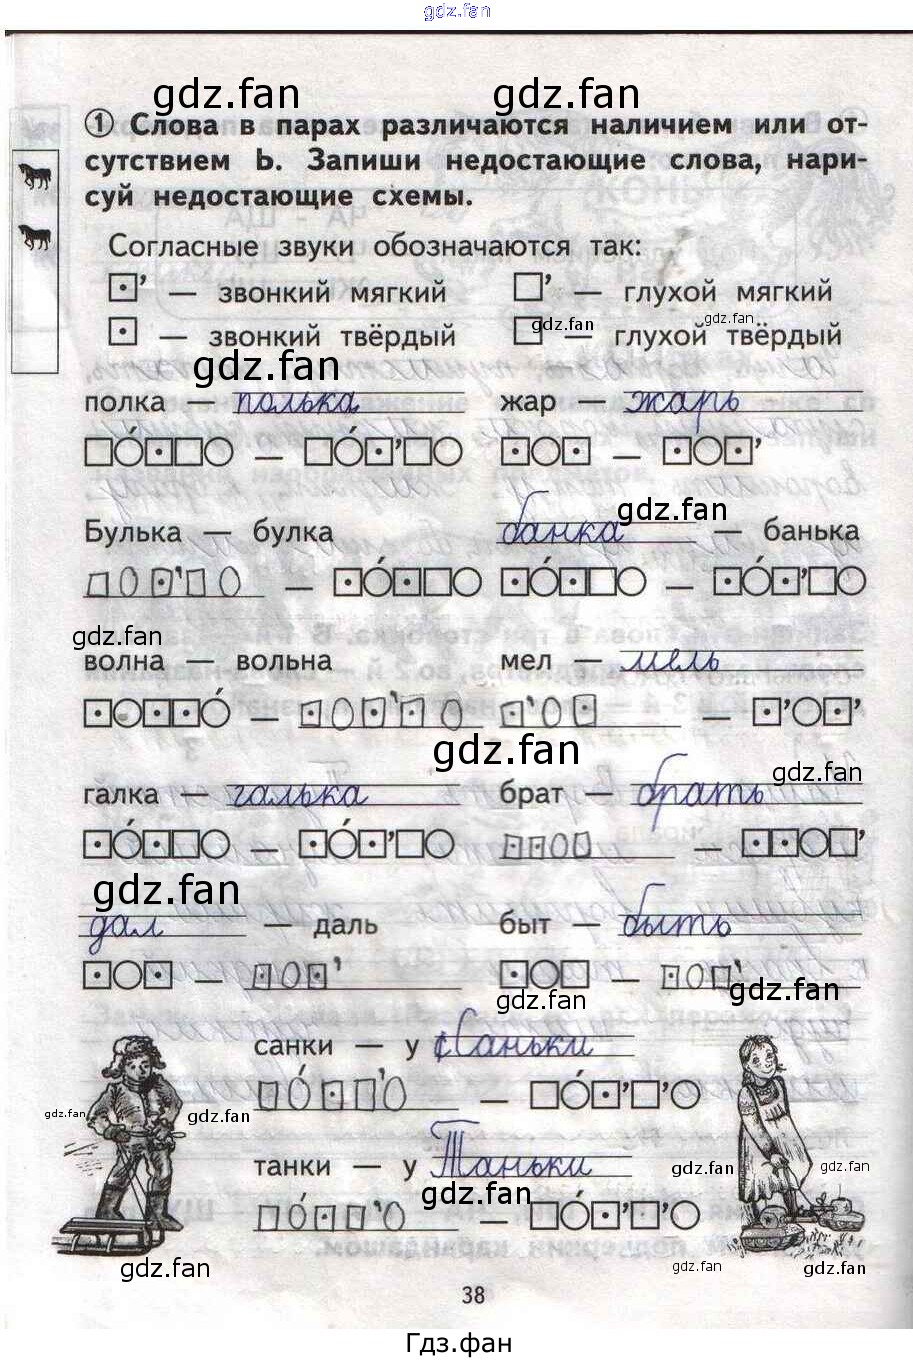 gdz.fan
gdz.fan gdz.fan
1 Слова в парах различаются наличием или от-
сутствием Ь. Запиши недостающие слова, нари-
суй недостающие схемы.
Согласные звуки обозначаются так:
— звонкий мягкий — глухой мягкий
gdz.fan gdz.fan
— звонкий твёрдый — глухой твёрдый
gdz.fan
полка — полька жар — жарь
gdz.fan
Булька — булка банка — банька
gdz.fan
волна — вольна мел — мель
gdz.fan
gdz.fan
галка — галька брат — брать
gdz.fan
дал — даль быт — быть
gdz.fan gdz.fan
санки — у Саньки
gdz.fan gdz.fan
танки — у Таньки
gdz.fan gdz.fan gdz.fan
gdz.fan gdz.fan gdz.fan
38
Гдз.фан